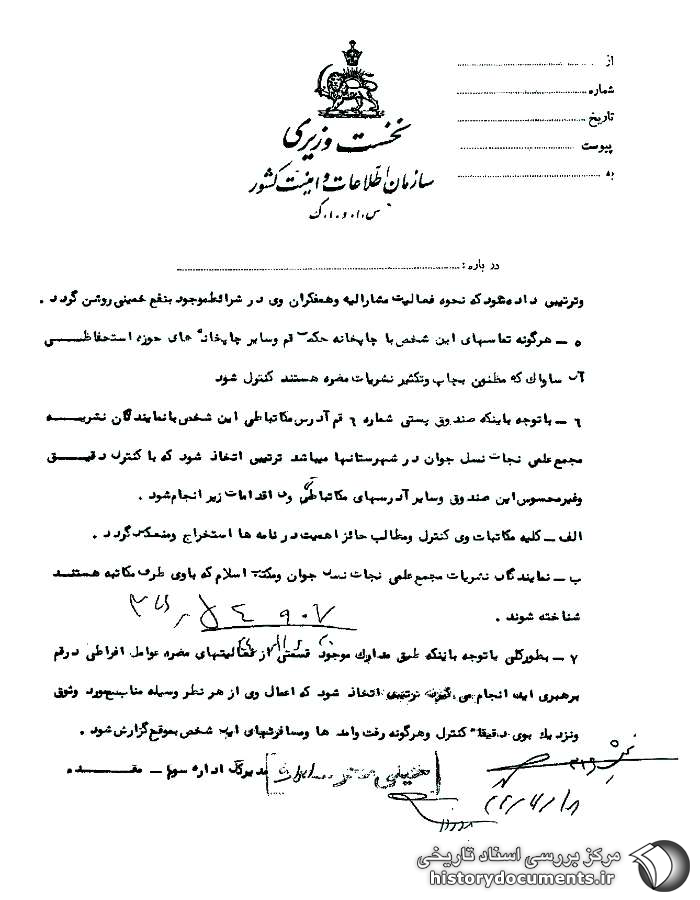 از
شماره
تاریخ
پیوست
به
نخست وزیری
سازمان اطلاعات و امنیت کشور
س.ا.و.ا.ک
درباره :
وترتیبی داده شود که نحوه فعالیت مشارالیه وهمفکران وی در شرائط موجود بنفع خمینی روشن گردد .
٥ – هرگونه تماسهای این شخص با چاپخانه حکمت قم وسایر چاپخانه های حوزه استحفاظی
آن ساواک که مظنون بچاپ وتکثیر نشریات مضره هستند کنترل شود
٦ – باتوجه باینکه صندوق پستی شماره ٦ قم آدرس مکاتباطی این شخص با نمایندگان نشریه
مجمع علمی نجات نسل جوان در شهرستانها میباشد ترتیبی اتخاذ شود که با کنترل دقیق
وغیرمحسوس این صندوق وسایر آدرسهای مکاتباطی وی اقدامات زیر انجام شود .
الف – کلیه مکاتبات وی کنترل ومطالب حائز اهمیت در نامه ها استخراج ومنعکس گردد .
ب – نمایندگان نشریات مجمع علمی نجات نسل جوان ومکتب اسلام که باوی طرف مکاتبه هستند
شناخته شوند .
٧ – بطورکلی باتوجه باینکه طبق مدارک موجود قسمتی از فعالیتهای مضره عوامل افراطی درقم
برهبری این انجام می گیرد ترتیبی اتخاذ شود که اعمال وی از هر نظر وسیله منابع مورد وثوق
ونزدیک بوی دقیقا کنترل وهرگونه رفت وآمد ها ومسافرتهای این شخص بموقع گزارش شود .
مدیرکل اداره سوم – مقدم
مرکز بررسی اسناد تاریخی
historydocuments.ir